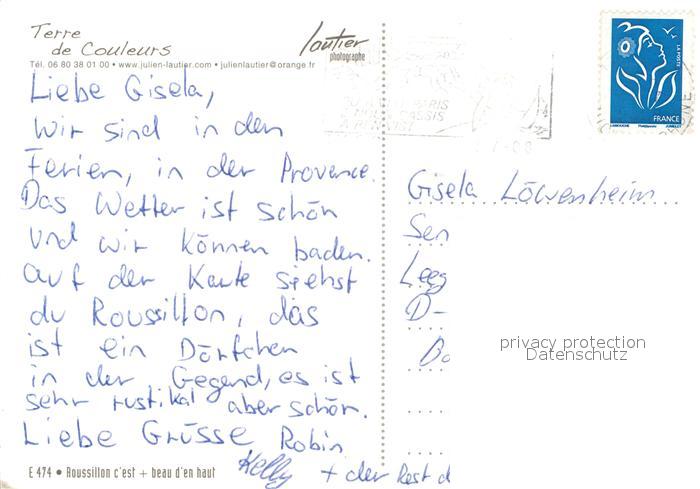 Terre
de Couleurs
lautier
photographe
Tél. 06 80 38 01 00 • www.julien-lautier.com • julienlautier@orange.fr
LA POSTE
FRANCE
Liebe Gisela,
wir sind in den
Ferien, in der Provence.
Das Wetter ist schön
und wir können baden.
auf der Karte siehst
du Roussillon, das
ist ein Dörfchen
in der Gegend, es ist
sehr rustikal aber schön.
Liebe Grüsse Robin
Kelly + der Rest d
Gisela Löwenheim
Sen
Leeg
D-
privacy protection
Datenschutz
E 474 • Roussillon c'est + beau d'en haut